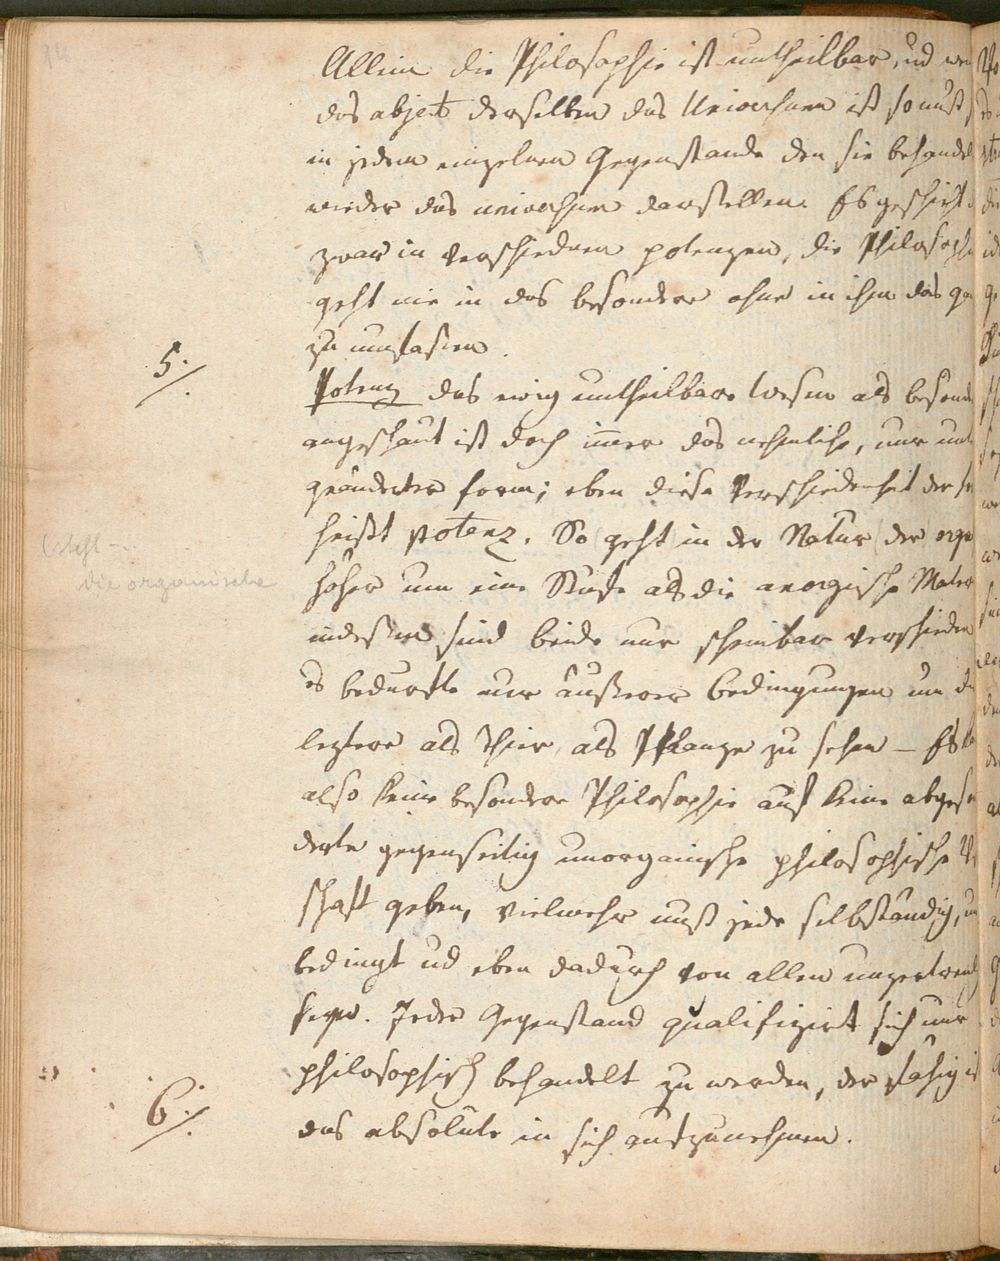 Allein die Philosophie ist untheilbar, ud wen
das object derselben das Universum ist so muß s
in jedem einzelnen Gegenstande den sie behandel
wieder das universum darstellen. Es geschieht
zwar in verschiednen potenzen, die Philosophi
geht nie in das besondere ohne in ihm das ga
zu umfaßen.
5./.
Potenz das ewig untheilbare Wesen als besond
angeschaut ist doch imer das nehmliche, nur unt
geänderter form; eben diese Verschiedenheit der fo
heißt potenz. So (geht) in der Natur (der orga
steht -
die organische
höher um eine Stufe als die anorgische Mater
indeßen sind beide nur scheinbar verschieden
es bedurfte nur äußerer bedingungen um d
leztere als Thier, als Pflanze zu sehen – Es
also keine besondere Philosophie auf keine abges
derte gegenseitig unorganische philosophische
schaft geben, vielmehr muß jede selbständig, un
bedingt ud eben dadurch von allen unzertrenl
seyn. Jeder Gegenstand qualifizirt sich nur
philosophisch behandelt zu werden, der fähig is
6./.
das absolute in sich aufzunehmen.